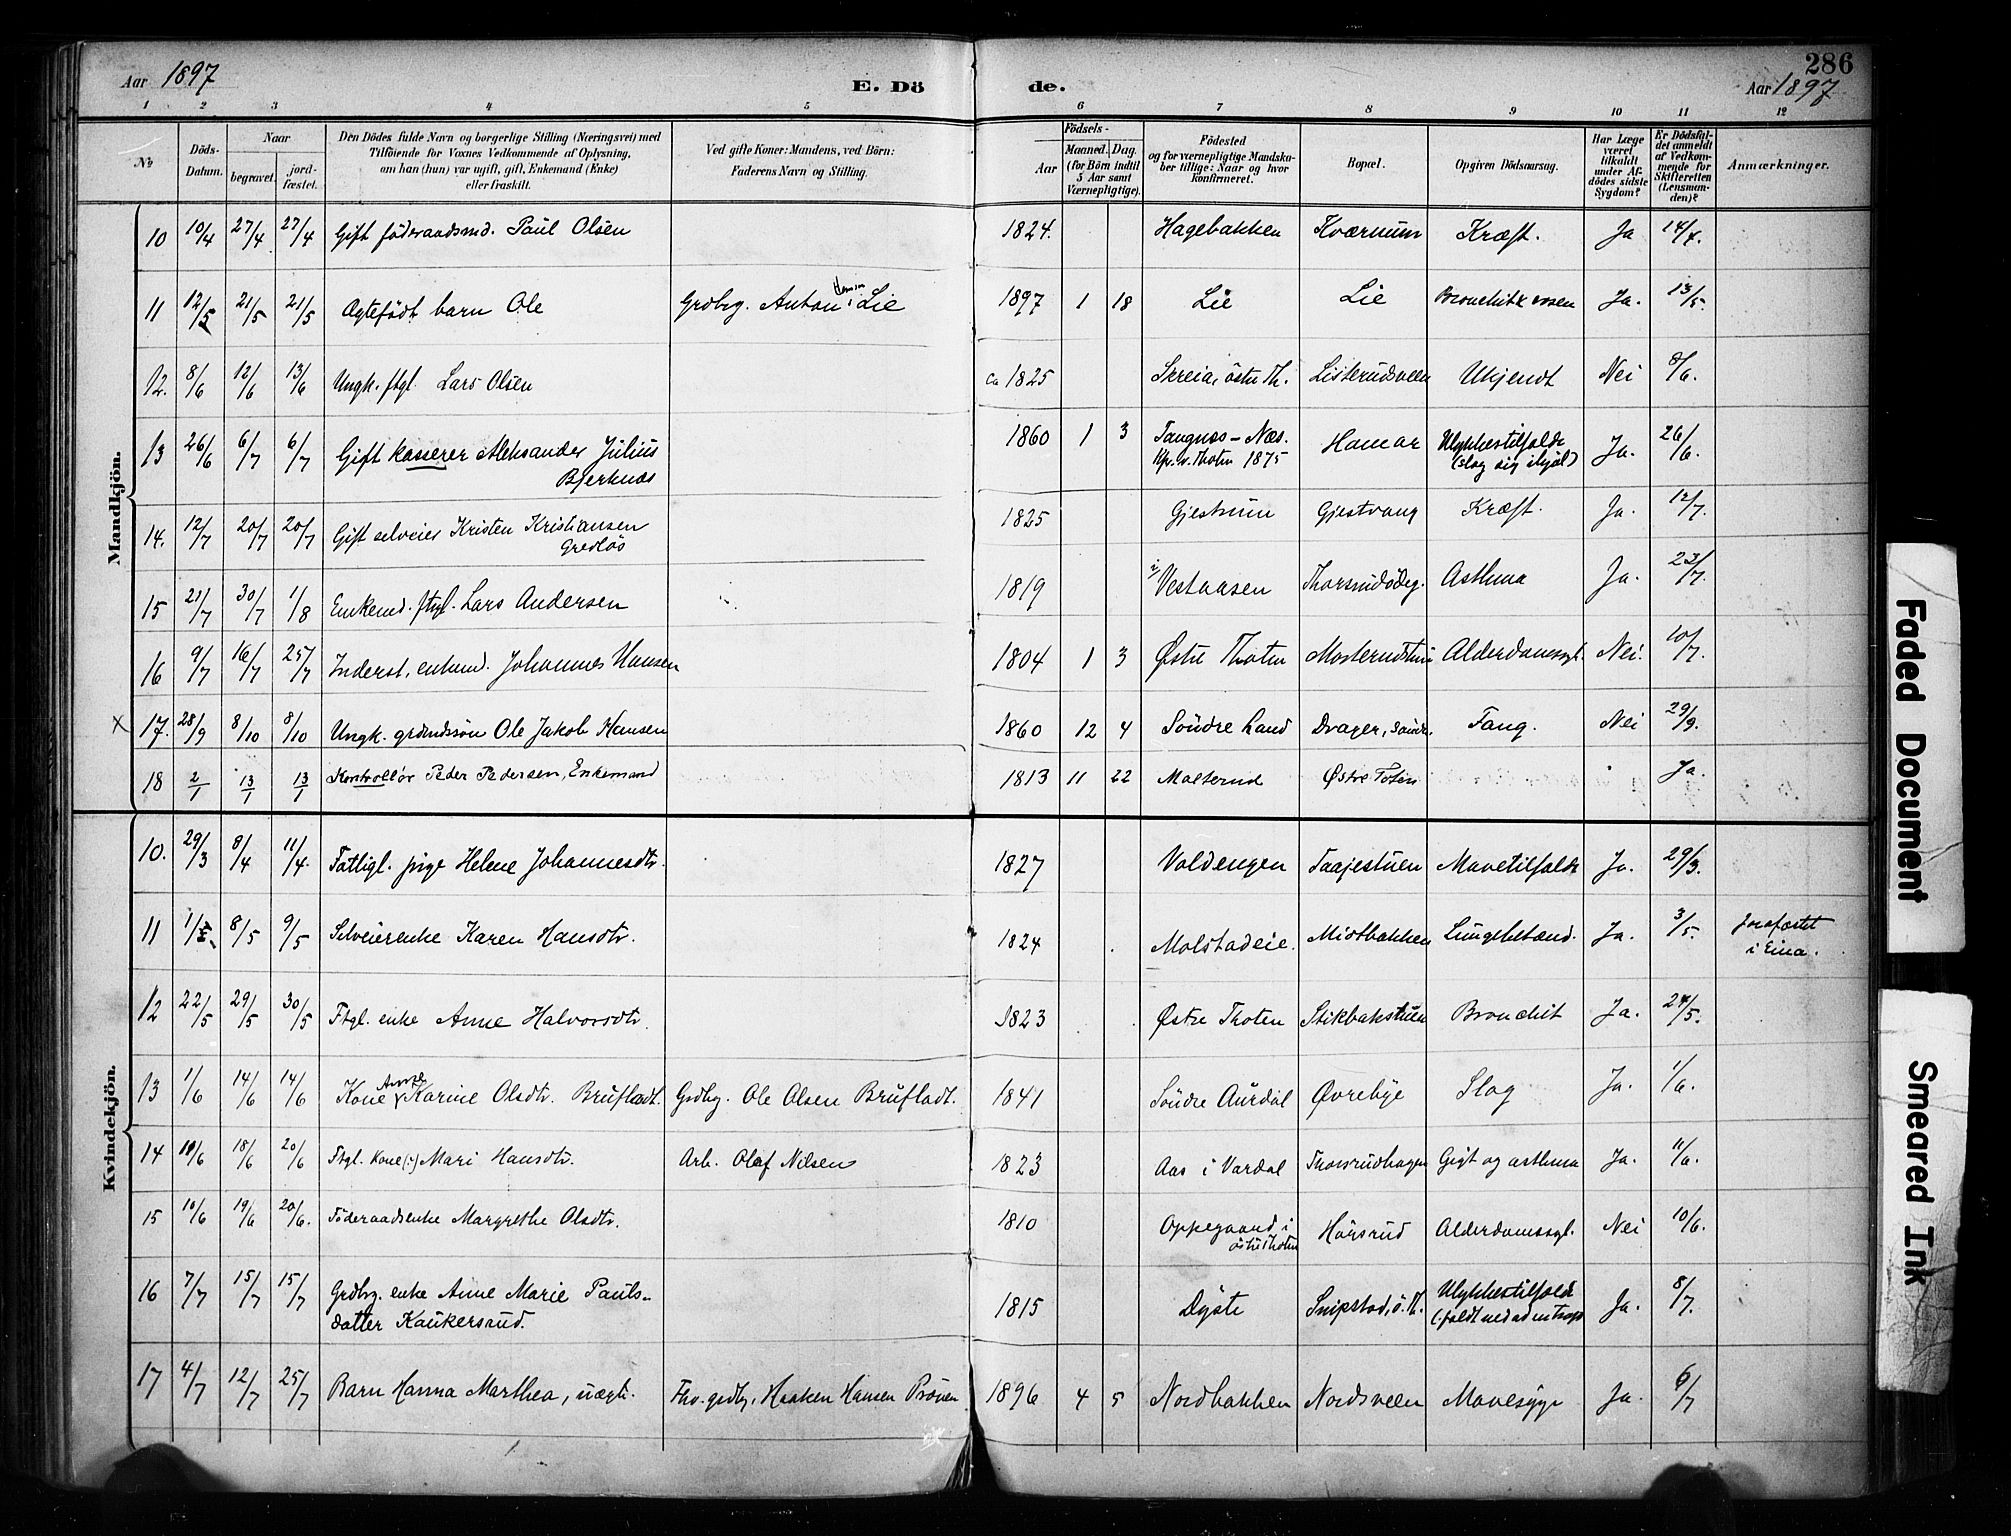 286
Aar 1897 E. Dö de. Aar 1897
1 2 3 4 5 6 7 8 9 10 11 12
No
Döds-Datum.
Naar
begravet. jord-fæstet.
Den Dödes fulde Navn og borgerlige Stilling (Næringsvei) med
Tilföiende for Voxnes Vedkommende af Oplysning,
om han (hun) var ugift, gift, Enkemand (Enke)
eller fraskilt.
Ved gifte Koner: Mandens, ved Börn:
Faderens Navn og Stilling.
Födsels-
Aar Maaned. Dag.
(for Börn indtil
5 Aar samt
Værnepligtige).
Födested
og for værnepligtige Mandska-
ber tillige: Naar og hvor
konfirmeret.
Bopæl.
Opgiven Dödsaarsag.
Har Læge
været
tilkaldt
under Af-
dödes sidste
Sygdom?
Er Dödsfal-
det anmeldt
af Vedkom-
mende for
Skifteretten
(Lensman-
den)?
Anmærkninger.
Mandkjön.
10 10/4 27/4 27/4 Gift föderaadsmd. Paul Olsen 1824. Hagebakken Kværnum Kræft. Ja 14/4.
11 12/5 21/5 21/5 Ægtefödt barn Ole Grdbrg. Anton Lie 1897 1 18 Lie Lie Ja. 13/5.
12. 8/6 12/6 13/6 Ungk. ftgl. Lars Olsen ca 1825 Skreia, östre Th. Listerudsveen Ukjendt Nei 8/6.
13 26/6 6/7 6/7 Gift kasserer Aleksander Julius
Bjerknæs 1860 1 3 Tangnæs - Næs.
Kfr. v. Thoten 1875 Hamar Ulykkestilfælde
(slog sig ihjæl) Ja. 26/6.
14. 12/7 20/7 20/7 Gift selveier Kristen Kristiansen
Gredlös 1825 Gjestrum Gjestvang Kræft. Ja. 12/7.
15 21/7 30/7 1/8 Enkemd. ftgl. Lars Andersen 1819 Vestaasen Thorsrudödeg. Asthma Ja. 23/7.
16 9/7 16/7 25/7 Inderst, enkemd. Johannes Hansen 1804 1 3 Østre Thoten Alderdomssygd. Nei. 10/7.
X 17. 28/9 8/10 8/10 Ungk. grdmdssön Ole Jakob Hansen 1860 12 4 Söndre Land Drager, söndr. Tang. Nei 29/9.
18 2/1 13/1 13/1 Kontrollör Peder Pedersen, Enkemand 1813 11 22 Molterud Østre Toten Ja.
Kvindekjön.
10. 29/3 8/4 11/4. Fattigl. pige Helene Johannesdtr. 1827 Voldengen Taajestuen Mavetilfælde Ja. 29/3.
11 1/5. 8/5 9/5 Selveierenke Karen Hansdtr. 1824 Molstadeie. Midtbakken Lungebetænd. Ja. 3/5. Jordfæstet
i Eina.
12 22/5 29/5 30/5 Ftgl. enke Anne Halvorsdtr. 1823 Østre Thoten Stikbakstuen Bronchit Ja. 24/5.
13 1/6 14/6 14/6 Kone Anne Karine Olsdtr. Brufladt. Grdbrg. Ole Olsen Brufladt. 1841 Söndre Aurdal Øvrebye Slag Ja. 1/6.
14 10/6 18/6 20/6 Ftgl. Kone (:) Mari Hansdtr. Arb. Olaf Nilsen 1823 Aas i Vardal Thorsrudhagen Gigt og asthma Ja. 11/6.
15 10/6 19/6 20/6. Föderaadsenke Margrethe Olsdtr. 1810 Oppegaard i
östre Thoten Hörsrud Alderdomssygd. Nei 10/6.
16 7/7 15/7 15/7 Grdbrg. enke Anne Marie Pauls-
datter Kaukersrud. 1815 Dyste Snipstad, ö. Th. Ulykkestilfælde
(: faldt ned ad en trap Ja. 8/7.
17 4/7 12/7 25/7 Barn Hanna Marthea, uægte. Fhv. grdbrg. Haaken Hansen Prøven 1896 4 5 Nordbakken Nordsveen Mavesyge Ja. 6/7
Faded Document
Smeared Ink